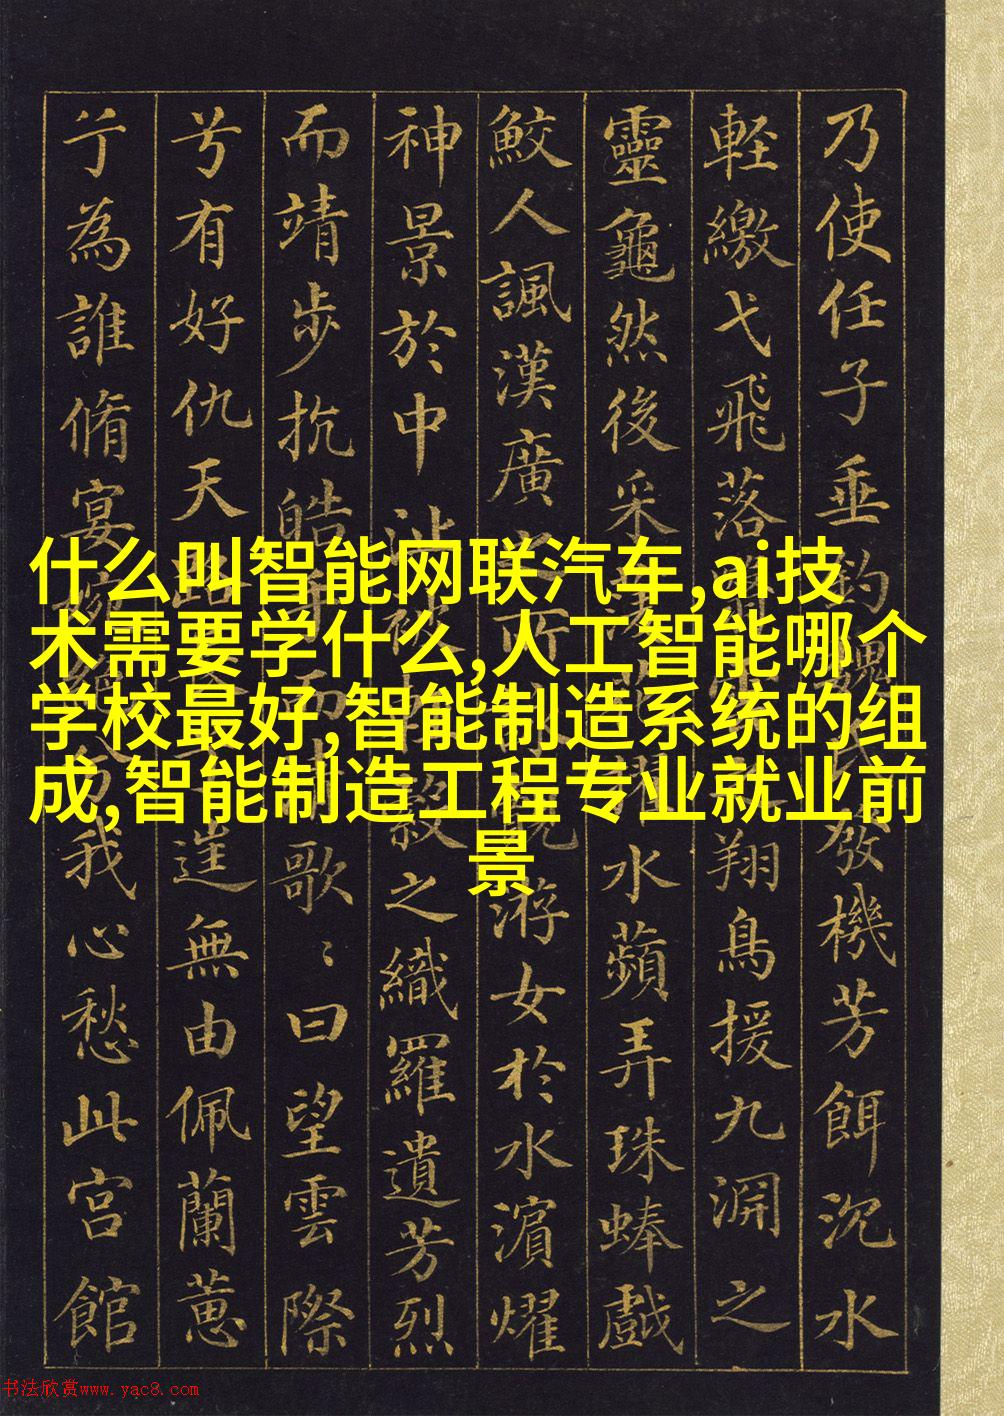 乃使任子垂發機芳餌沉水
軽繳弋飛落翔鳥援九渊之
靈龜然後采水蘋弄珠蜯戲
鮫人諷漢廣游女於水濱燿
神景於中之織羅遺芳烈
而靖步抗皓歌〻曰望雲際
兮有好仇天無由佩蘭蕙
兮為誰脩宴我心愁此宮館
什么叫智能网联汽车,ai技
术需要学什么,人工智能哪个
学校最好,智能制造系统的组
成,智能制造工程专业就业前
景
书法欣赏www.yac8.com